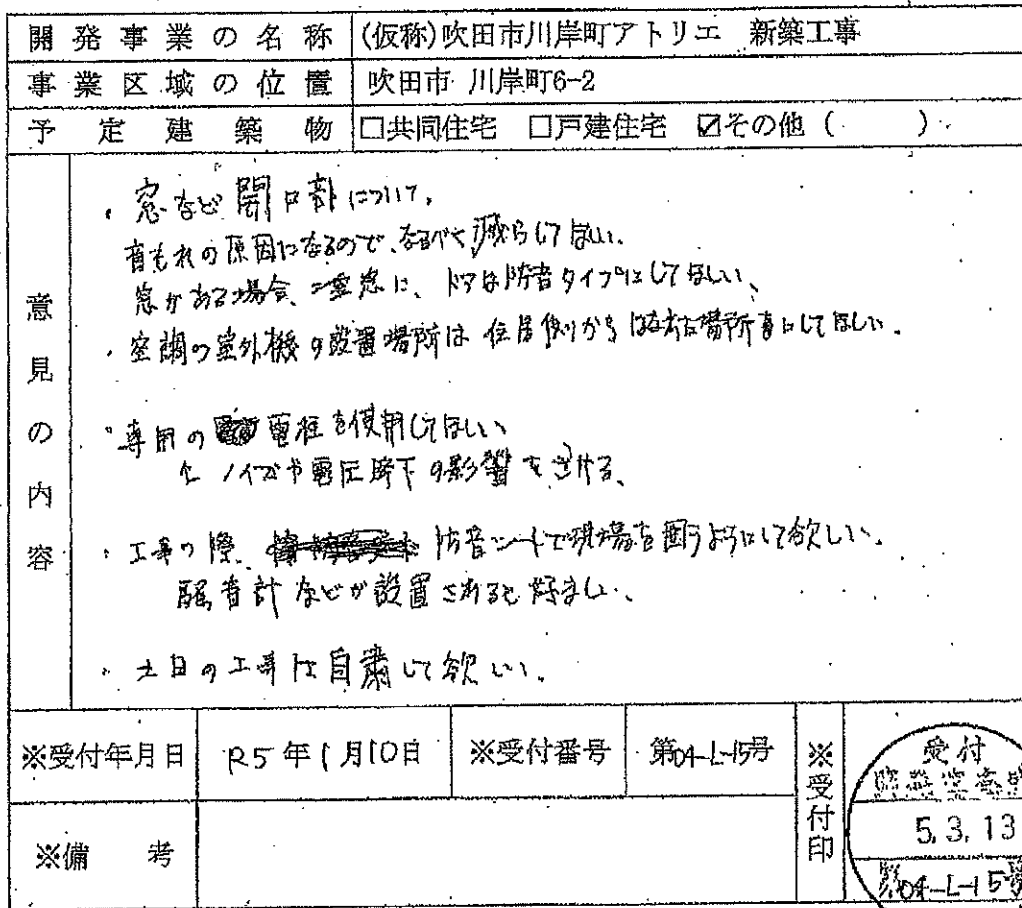 開発事業の名称 (仮称)吹田市川岸町アトリエ 新築工事
事業区域の位置 吹田市 川岸町6-2
予定建築物 □共同住宅 □戸建住宅 ☑その他 ( )
意見の内容
・窓など開口部について。
音もれの原因になるので、なるべく減らしてほしい。
窓がある場合、二重窓に、ドアは防音タイプにしてほしい、
・空調の室外機の設置場所は住居側からはなれた場所にしてほしい。
・専用の電柱を使用してほしい
↑ ノイズや電圧降下の影響をさける、
・工事の際、防音シートで現場を囲うようにして欲しい。
騒音計などが設置されると好ましい、
・土日の工事は自粛して欲しい。
※受付年月日 R5年1月10日 ※受付番号 第04-L-15号 ※受付印
受付
5.3.13
第04-L-15号
※備考